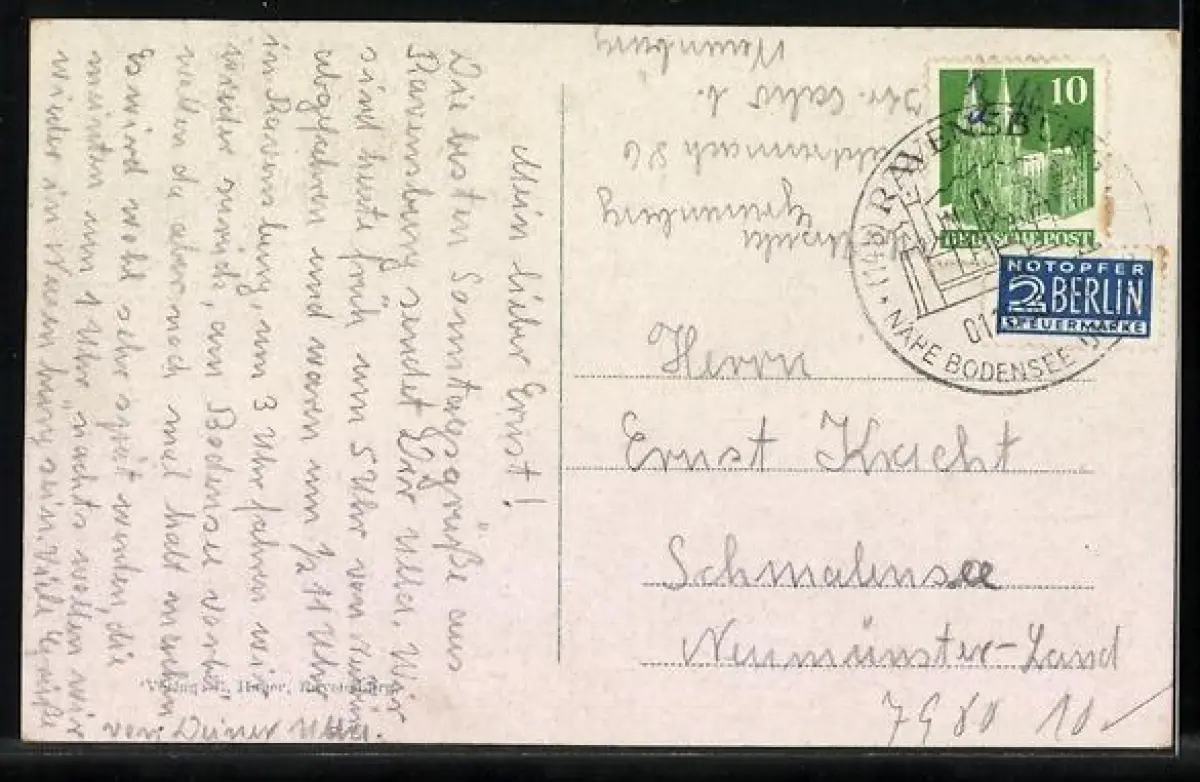 Mein lieber Ernst!
Die besten Sonntagsgrüße aus
Ravensburg sendet Dir Ulla. Wir
sind heute früh um 5 Uhr von
abgefahren und waren um ½ 11 Uhr
in Ravensburg, um 3 Uhr fahren wir
wieder zurück, am Bodensee vorbei
wollen da aber noch mal halt machen
Es wird wohl sehr spät werden, die
meinten um 1 Uhr nachts wollen wir
wieder in sein. Viele Grüße
von Deiner Ulla.
Herrn
Ernst Kracht
Schmalensee
Neumünster-Land
7980 10.-
10
DEUTSCHE POST
NOTOPFER
2 BERLIN
STEUERMARKE
RAVENSB
(14b)
NÄHE BODENSEE